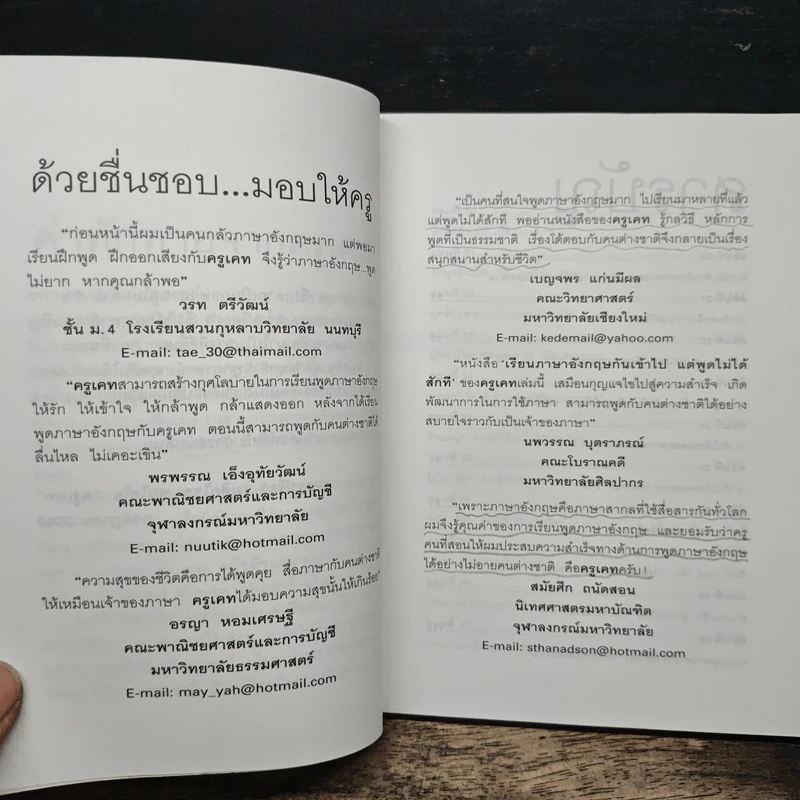 ด้วยชื่นชอบ...มอบให้ครู
“ก่อนหน้านี้ผมเป็นคนกลัวภาษาอังกฤษมาก แต่พอมา
เรียนฝึกพูด ฝึกออกเสียงกับครูเคท จึงรู้ว่าภาษาอังกฤษ...พูด
ไม่ยาก หากคุณกล้าพอ”
วรท ตรีวัฒน์
ชั้น ม. 4 โรงเรียนสวนกุหลาบวิทยาลัย นนทบุรี
E-mail: tae_30@thaimail.com
“ครูเคทสามารถสร้างกุศโลบายในการเรียนพูดภาษาอังกฤษ
ให้รัก ให้เข้าใจ ให้กล้าพูด กล้าแสดงออก หลังจากได้เรียน
พูดภาษาอังกฤษกับครูเคท ตอนนี้สามารถพูดกับคนต่างชาติได้
ลื่นไหล ไม่เคอะเขิน”
พรพรรณ เอ็งอุทัยวัฒน์
คณะพาณิชยศาสตร์และการบัญชี
จุฬาลงกรณ์มหาวิทยาลัย
E-mail: nuutik@hotmail.com
“ความสุขของชีวิตคือการได้พูดคุย สื่อภาษากับคนต่างชาติ
ให้เหมือนเจ้าของภาษา ครูเคทได้มอบความสุขนั้นให้เกินร้อย”
อรญา หอมเศรษฐี
คณะพาณิชยศาสตร์และการบัญชี
มหาวิทยาลัยธรรมศาสตร์
E-mail: may_yah@hotmail.com
“เป็นคนที่สนใจพูดภาษาอังกฤษมาก ไปเรียนมาหลายที่แล้ว
แต่พูดไม่ได้สักที พออ่านหนังสือของครูเคท รู้กลวิธี หลักการ
พูดที่เป็นธรรมชาติ เรื่องโต้ตอบกับคนต่างชาติจึงกลายเป็นเรื่อง
สนุกสนานสำหรับชีวิต”
เบญจพร แก่นมีผล
คณะวิทยาศาสตร์
มหาวิทยาลัยเชียงใหม่
E-mail: kedemail@yahoo.com
“หนังสือ ‘เรียนภาษาอังกฤษกันเข้าไป แต่พูดไม่ได้
สักที’ ของครูเคทเล่มนี้ เสมือนกุญแจไขไปสู่ความสำเร็จ เกิด
พัฒนาการในการใช้ภาษา สามารถพูดกับคนต่างชาติได้อย่าง
สบายใจราวกับเป็นเจ้าของภาษา”
นพวรรณ บุตราภรณ์
คณะโบราณคดี
มหาวิทยาลัยศิลปากร
“เพราะภาษาอังกฤษคือภาษาสากลที่ใช้สื่อสารกันทั่วโลก
ผมจึงรู้คุณค่าของการเรียนพูดภาษาอังกฤษ และยอมรับว่าครู
คนที่สอนให้ผมประสบความสำเร็จทางด้านการพูดภาษาอังกฤษ
ได้อย่างไม่อายคนต่างชาติ คือครูเคทครับ!”
สมัยศึก ถนัดสอน
นิเทศศาสตรมหาบัณฑิต
จุฬาลงกรณ์มหาวิทยาลัย
E-mail: sthanadson@hotmail.com